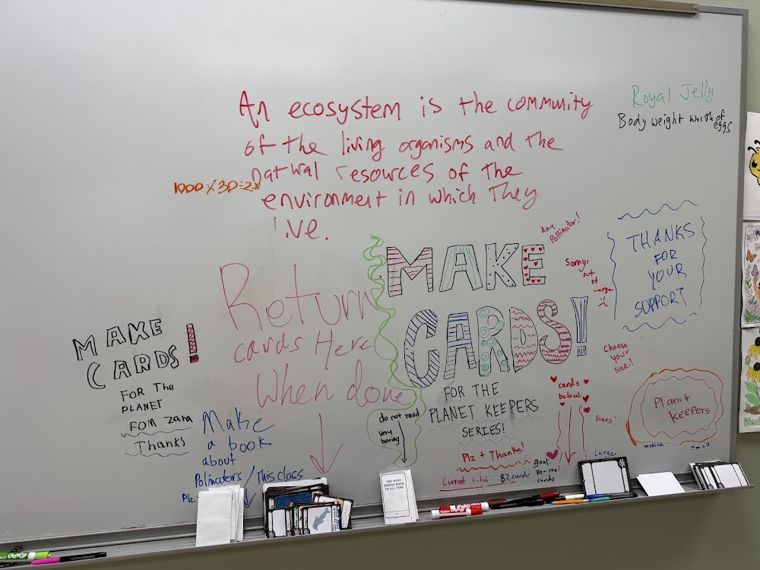 An ecosystem is the community
of the living organisms and the
natural resources of the
environment in which they
live.
Royal Jelly
Body weight worth of
eggs
1000 X 3D
Any
Pollinator!
THANKS
FOR
YOUR
SUPPORT
MAKE
CARDS!
Sorry,
out
of
Large
Choose
your
size!
Return
cards Here
When done
MAKE
CARDS!
FOR THE
PLANET
FOM ZAHA
Thanks
Make
a book
about
Pollinators/This class
Plz
do not read
very
boring
FOR THE
PLANET KEEPERS
SERIES!
Plz + Thanks!
Current total: 82 cards
goal:
cards
cards
below
Sizes:
Large
Medium
Small
Planet
Keepers